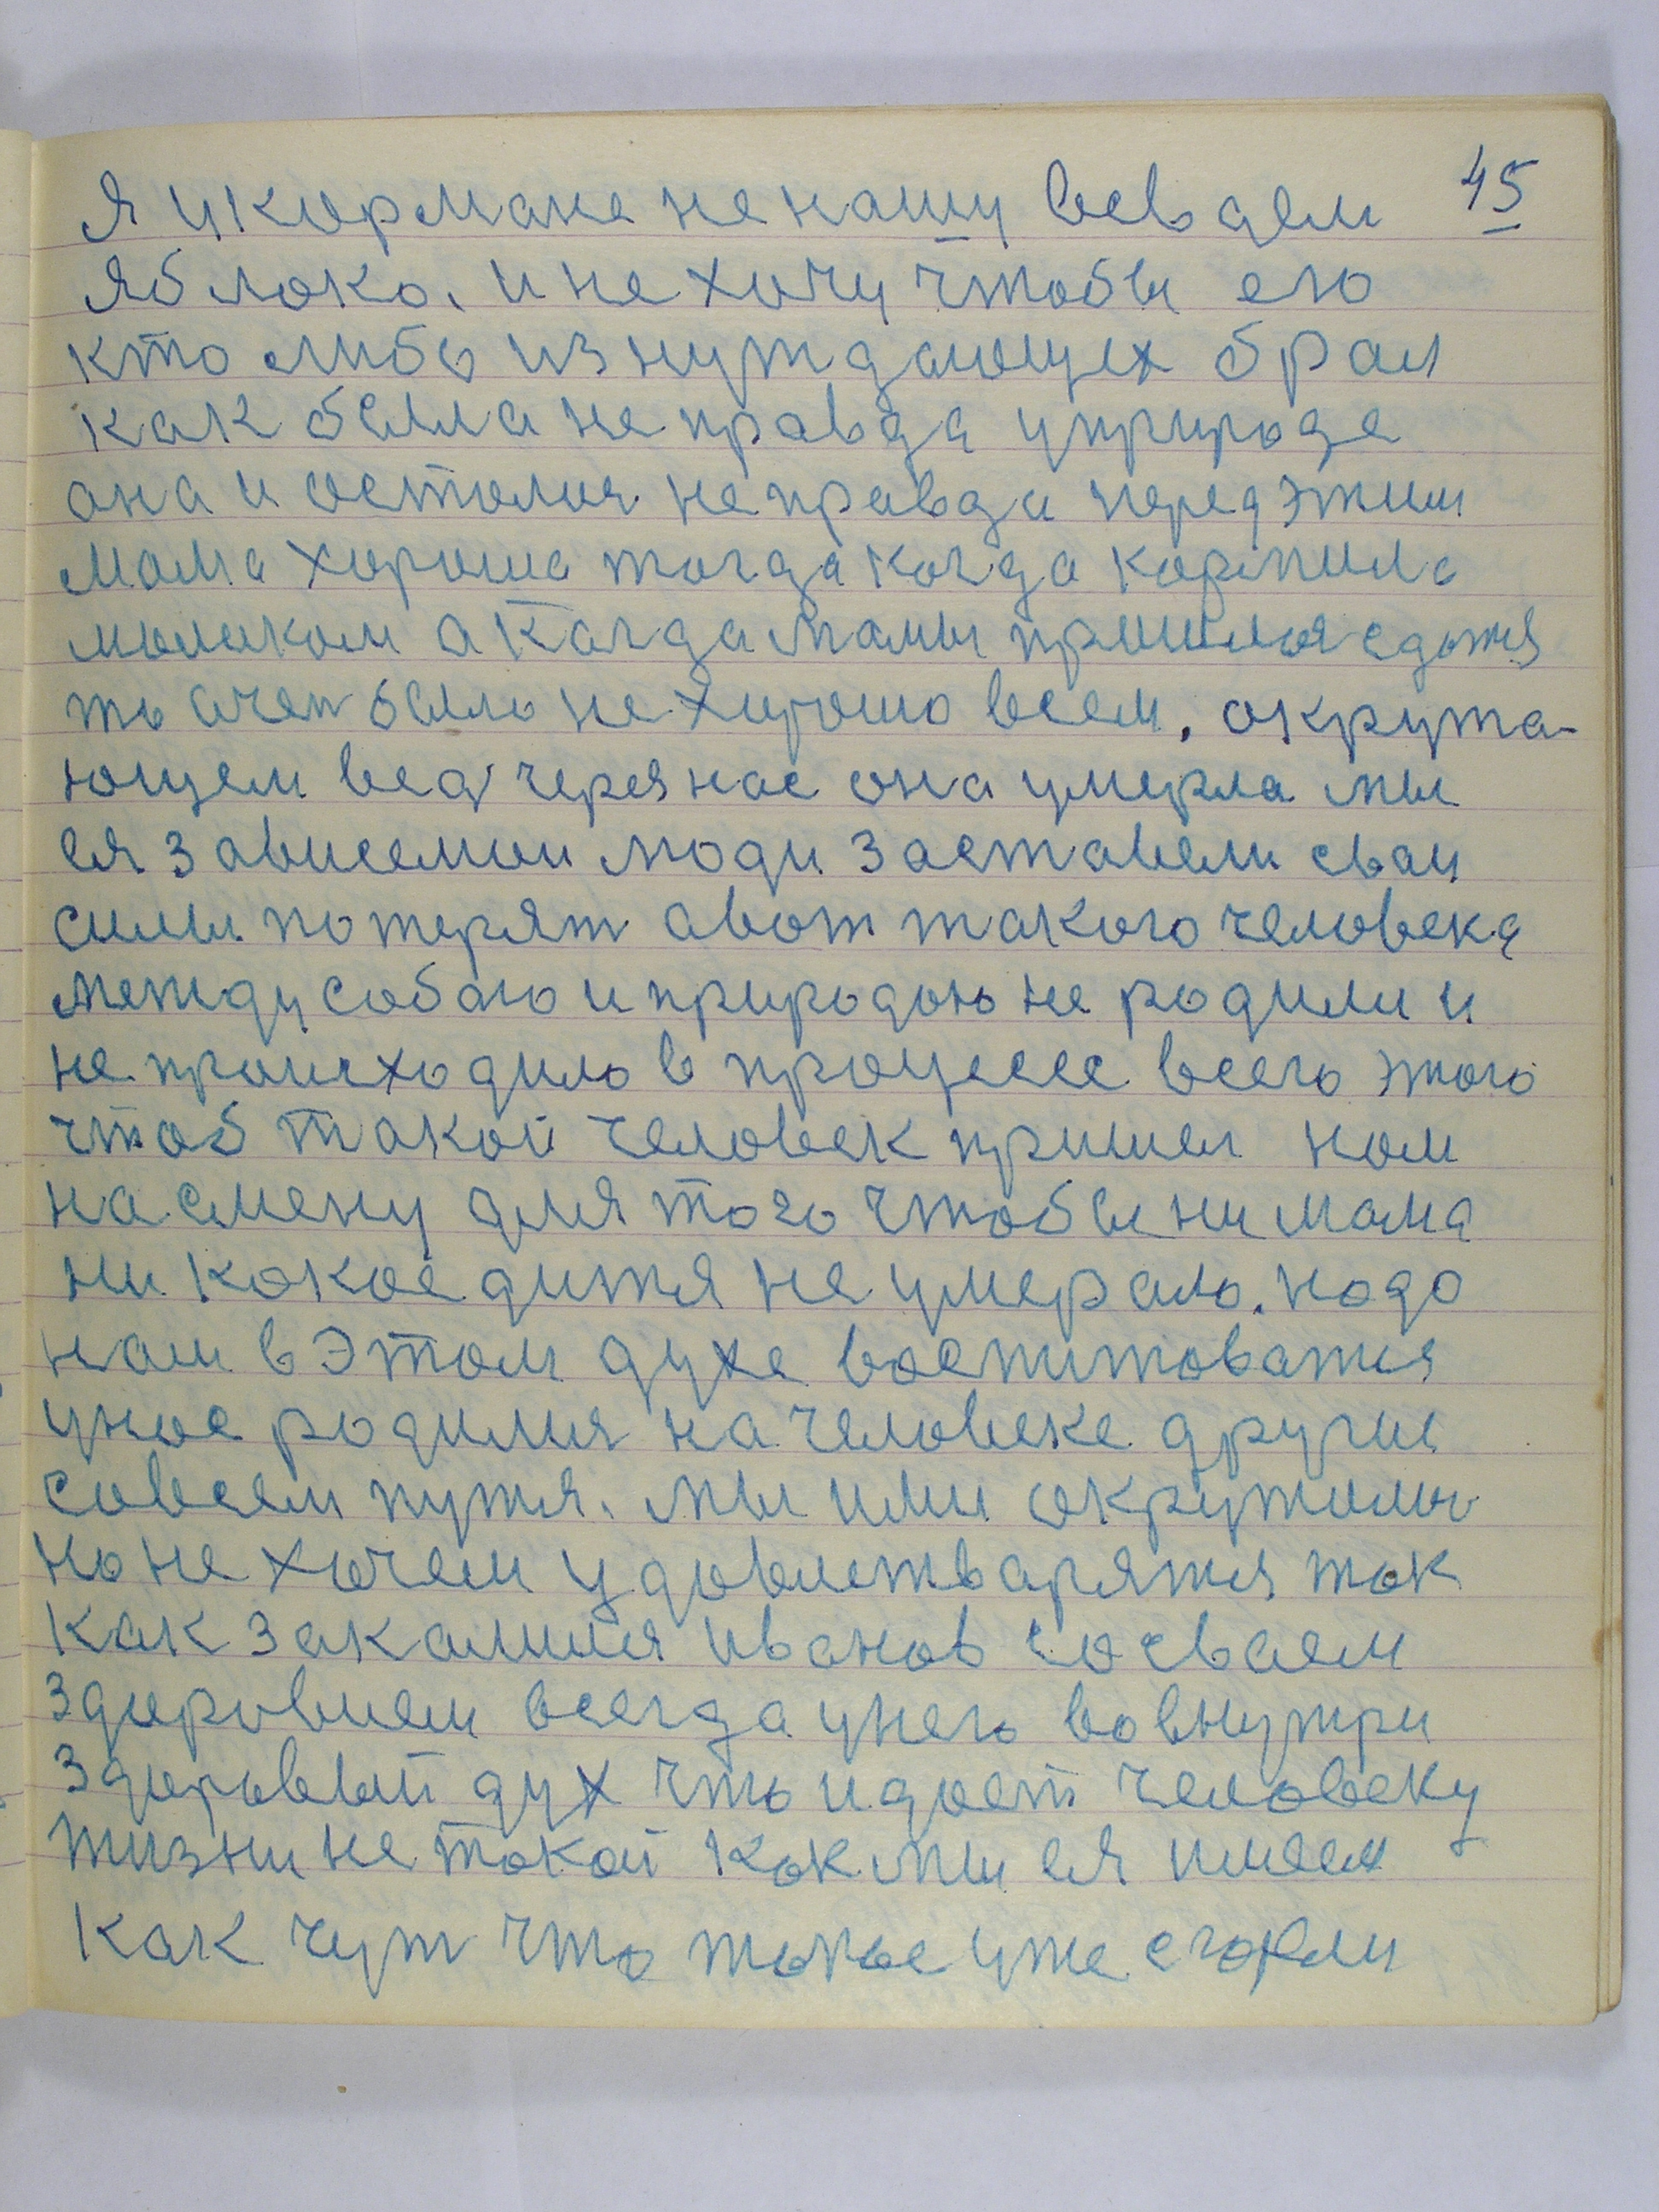 45
я укормане не нашу всем дем
яблоко. и не хочу чтобы ею
кто либо из нуждающех брал
как была не правда уприроде
она и осталися не правда перед этим
мама хороша тогда когда кормила
молоком а когда мамы пришлося сдатся
то очен было не хорошо всем. окружа-
ющем вед через нас она умерла мы
ея зависемои люди заставели сваи
силы потерят авот такого человека
между собою и природою не родили и
не происходило в процессе всего этого
чтоб такой человек пришел нам
на смену для того чтобы ни мама
ни какое дитя не умерало. надо
нам в этом духе воспитоватся
унас родился на человеке другие
совсем путя. мы ими окружилы
но не хочем удовлетварятся так
как закалился иванов со сваем
здоровием всегда унего вовнутри
здоровый дух что и дает человеку
жизни не такой как мы ея имеем
как чут что такое уже